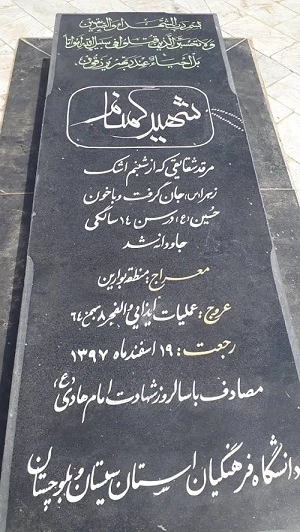 بسم رب الشهداء والصدیقین
ولا تحسبن الذین قتلوا فی سبیل الله امواتا
بل احیاء عند ربهم یرزقون
شهید گمنام
مرقد شقایقی که از شبنم اشک
زهرا(س) جان گرفت و با خون
حسین(ع) در سن ۱۴ سالگی
جاودانه شد
معراج: منطقه بوارین
عروج: عملیات ایذایی والفجر ۸ بهمن ۶۴
رجعت: ۱۹ اسفند ماه ۱۳۹۷
مصادف با سالروز شهادت امام هادی(ع)
دانشگاه فرهنگیان استان سیستان و بلوچستان